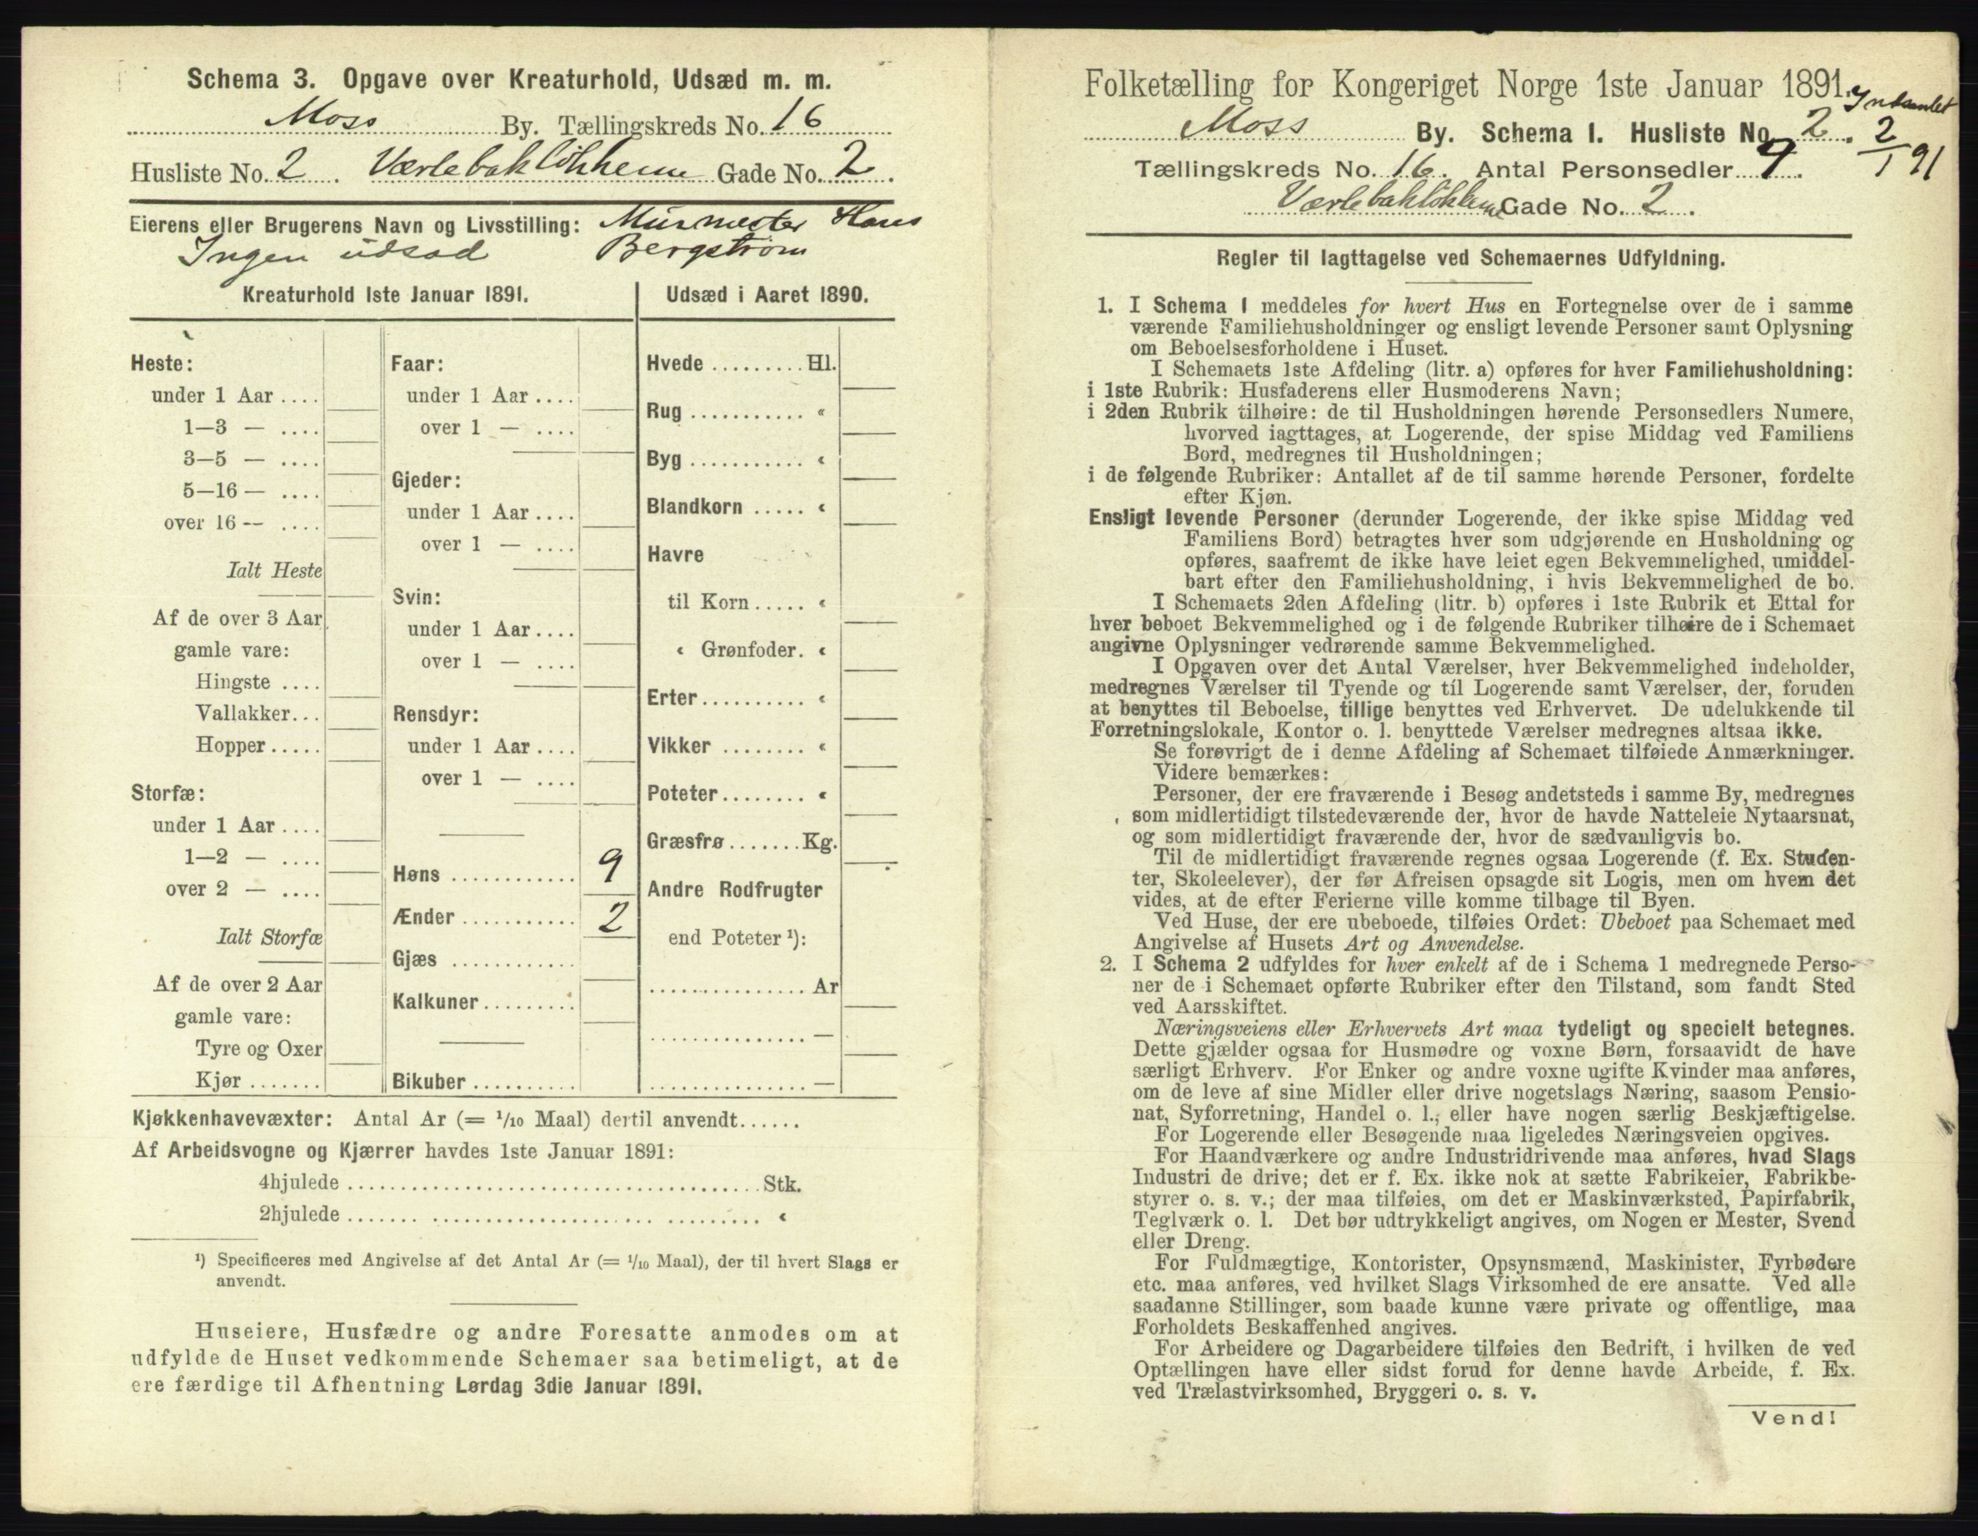 Schema 3. Opgave over Kreaturhold, Udsæd m. m.
Moss By. Tællingskreds No. 16
Husliste No. 2. Værlebakløkkerne Gade No. 2.
Eierens eller Brugerens Navn og Livsstilling: Murmester Hans
Ingen udsæd Bergstrøm
Kreaturhold 1ste Januar 1891.
Heste:
under 1 Aar ....
1—3 — ....
3—5 — ....
5—16 — ....
over 16 -- ....
Ialt Heste
Af de over 3 Aar
gamle vare:
Hingste ....
Vallakker...
Hopper.....
Storfæ:
under 1 Aar ....
1—2 — ....
over 2 — ....
Ialt Storfæ
Af de over 2 Aar
gamle vare:
Tyre og Oxer
Kjør .......
Faar:
under 1 Aar ....
over 1 — ....
Gjeder:
under 1 Aar ....
over 1 — ....
Svin:
under 1 Aar ....
over 1 — ....
Rensdyr:
under 1 Aar ....
over 1 — ....
Høns ............ 9
Ænder ........... 2
Gjæs ............
Kalkuner.........
Bikuber ..........
Udsæd i Aaret 1890.
Hvede ......... Hl.
Rug ........... «
Byg ........... «
Blandkorn ..... «
Havre
til Korn ..... «
« Grønfoder. «
Erter.......... «
Vikker ........ «
Poteter........ «
Græsfrø....... Kg.
Andre Rodfrugter
end Poteter ¹):
............... Ar
............... —
............... —
Kjøkkenhavevæxter: Antal Ar (= 1/10 Maal) dertil anvendt......
Af Arbeidsvogne og Kjærrer havdes 1ste Januar 1891:
4hjulede ........................................ Stk.
2hjulede ........................................ «
¹) Specificeres med Angivelse af det Antal Ar (= 1/10 Maal), der til hvert Slags er
anvendt.
Huseiere, Husfædre og andre Foresatte anmodes om at
udfylde de Huset vedkommende Schemaer saa betimeligt, at de
ere færdige til Afhentning Lørdag 3die Januar 1891.
Folketælling for Kongeriget Norge 1ste Januar 1891.
Indsamlet
2/1 91
Moss By. Schema 1. Husliste No. 2.
Tællingskreds No. 16. Antal Personsedler 9.
Værlebakløkkerne Gade No. 2.
Regler til Iagttagelse ved Schemaernes Udfyldning.
1. I Schema 1 meddeles for hvert Hus en Fortegnelse over de i samme
værende Familiehusholdninger og ensligt levende Personer samt Oplysning
om Beboelsesforholdene i Huset.
I Schemaets 1ste Afdeling (litr. a) opføres for hver Familiehusholdning:
i 1ste Rubrik: Husfaderens eller Husmoderens Navn;
i 2den Rubrik tilhøire: de til Husholdningen hørende Personsedlers Numere,
hvorved iagttages, at Logerende, der spise Middag ved Familiens
Bord, medregnes til Husholdningen;
i de følgende Rubriker: Antallet af de til samme hørende Personer, fordelte
efter Kjøn.
Ensligt levende Personer (derunder Logerende, der ikke spise Middag ved
Familiens Bord) betragtes hver som udgjørende en Husholdning og
opføres, saafremt de ikke have leiet egen Bekvemmelighed, umiddel-
bart efter den Familiehusholdning, i hvis Bekvemmelighed de bo.
I Schemaets 2den Afdeling (litr. b) opføres i 1ste Rubrik et Ettal for
hver beboet Bekvemmelighed og i de følgende Rubriker tilhøire de i Schemaet
angivne Oplysninger vedrørende samme Bekvemmelighed.
I Opgaven over det Antal Værelser, hver Bekvemmelighed indeholder,
medregnes Værelser til Tyende og til Logerende samt Værelser, der, foruden
at benyttes til Beboelse, tillige benyttes ved Erhvervet. De udelukkende til
Forretningslokale, Kontor o. l. benyttede Værelser medregnes altsaa ikke.
Se forøvrigt de i denne Afdeling af Schemaet tilføiede Anmærkninger.
Videre bemærkes:
Personer, der ere fraværende i Besøg andetsteds i samme By, medregnes
som midlertidigt tilstedeværende der, hvor de havde Natteleie Nytaarsnat,
og som midlertidigt fraværende der, hvor de sædvanligvis bo.
Til de midlertidigt fraværende regnes ogsaa Logerende (f. Ex. Studen-
ter, Skoleelever), der før Afreisen opsagde sit Logis, men om hvem det
vides, at de efter Ferierne ville komme tilbage til Byen.
Ved Huse, der ere ubeboede, tilføies Ordet: Ubeboet paa Schemaet med
Angivelse af Husets Art og Anvendelse.
2. I Schema 2 udfyldes for hver enkelt af de i Schema 1 medregnede Perso-
ner de i Schemaet opførte Rubriker efter den Tilstand, som fandt Sted
ved Aarsskiftet.
Næringsveiens eller Erhvervets Art maa tydeligt og specielt betegnes.
Dette gjælder ogsaa for Husmødre og voxne Børn, forsaavidt de have
særligt Erhverv. For Enker og andre voxne ugifte Kvinder maa anføres,
om de leve af sine Midler eller drive nogetslags Næring, saasom Pensio-
nat, Syforretning, Handel o. l., eller have nogen særlig Beskjæftigelse.
For Logerende eller Besøgende maa ligeledes Næringsveien opgives.
For Haandværkere og andre Industridrivende maa anføres, hvad Slags
Industri de drive; det er f. Ex. ikke nok at sætte Fabrikeier, Fabrikbe-
styrer o. s. v.; der maa tilføies, om det er Maskinværksted, Papirfabrik,
Teglværk o. l. Det bør udtrykkeligt angives, om Nogen er Mester, Svend
eller Dreng.
For Fuldmægtige, Kontorister, Opsynsmænd, Maskinister, Fyrbødere
etc. maa anføres, ved hvilket Slags Virksomhed de ere ansatte. Ved alle
saadanne Stillinger, som baade kunne være private og offentlige, maa
Forholdets Beskaffenhed angives.
For Arbeidere og Dagarbeidere tilføies den Bedrift, i hvilken de ved
Optællingen have eller sidst forud for denne havde Arbeide, f. Ex.
ved Trælastvirksomhed, Bryggeri o. s. v.
Vend!